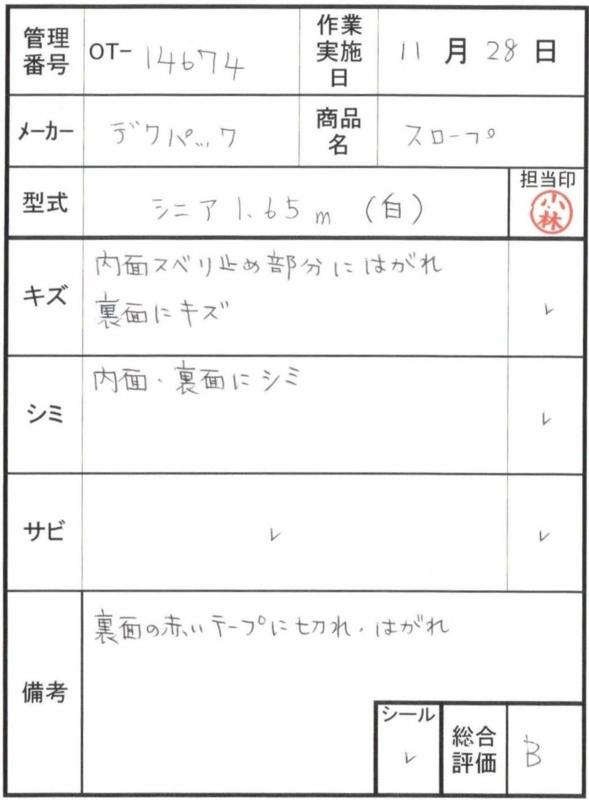 管理番号 OT- 14674 作業実施日 11月28日
メーカー デクパック 商品名 スロープ
型式 シニア 1.65m (白) 担当印 小林
キズ 内面スベリ止め部分にはがれ
裏面にキズ ✓
シミ 内面・裏面にシミ ✓
サビ ✓ ✓
備考 裏面の赤いテープに切れ・はがれ
シール ✓ 総合評価 B